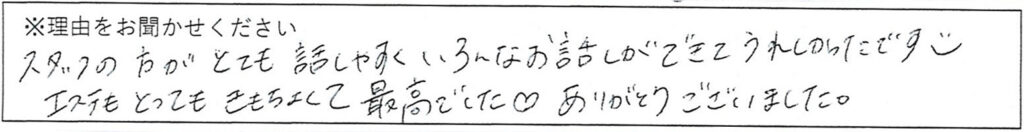 ※理由をお聞かせください
スタッフの方がとても話しやすくいろんなお話しができてうれしかったです
エステもとってもきもちよくて最高でした♡ ありがとうございました。